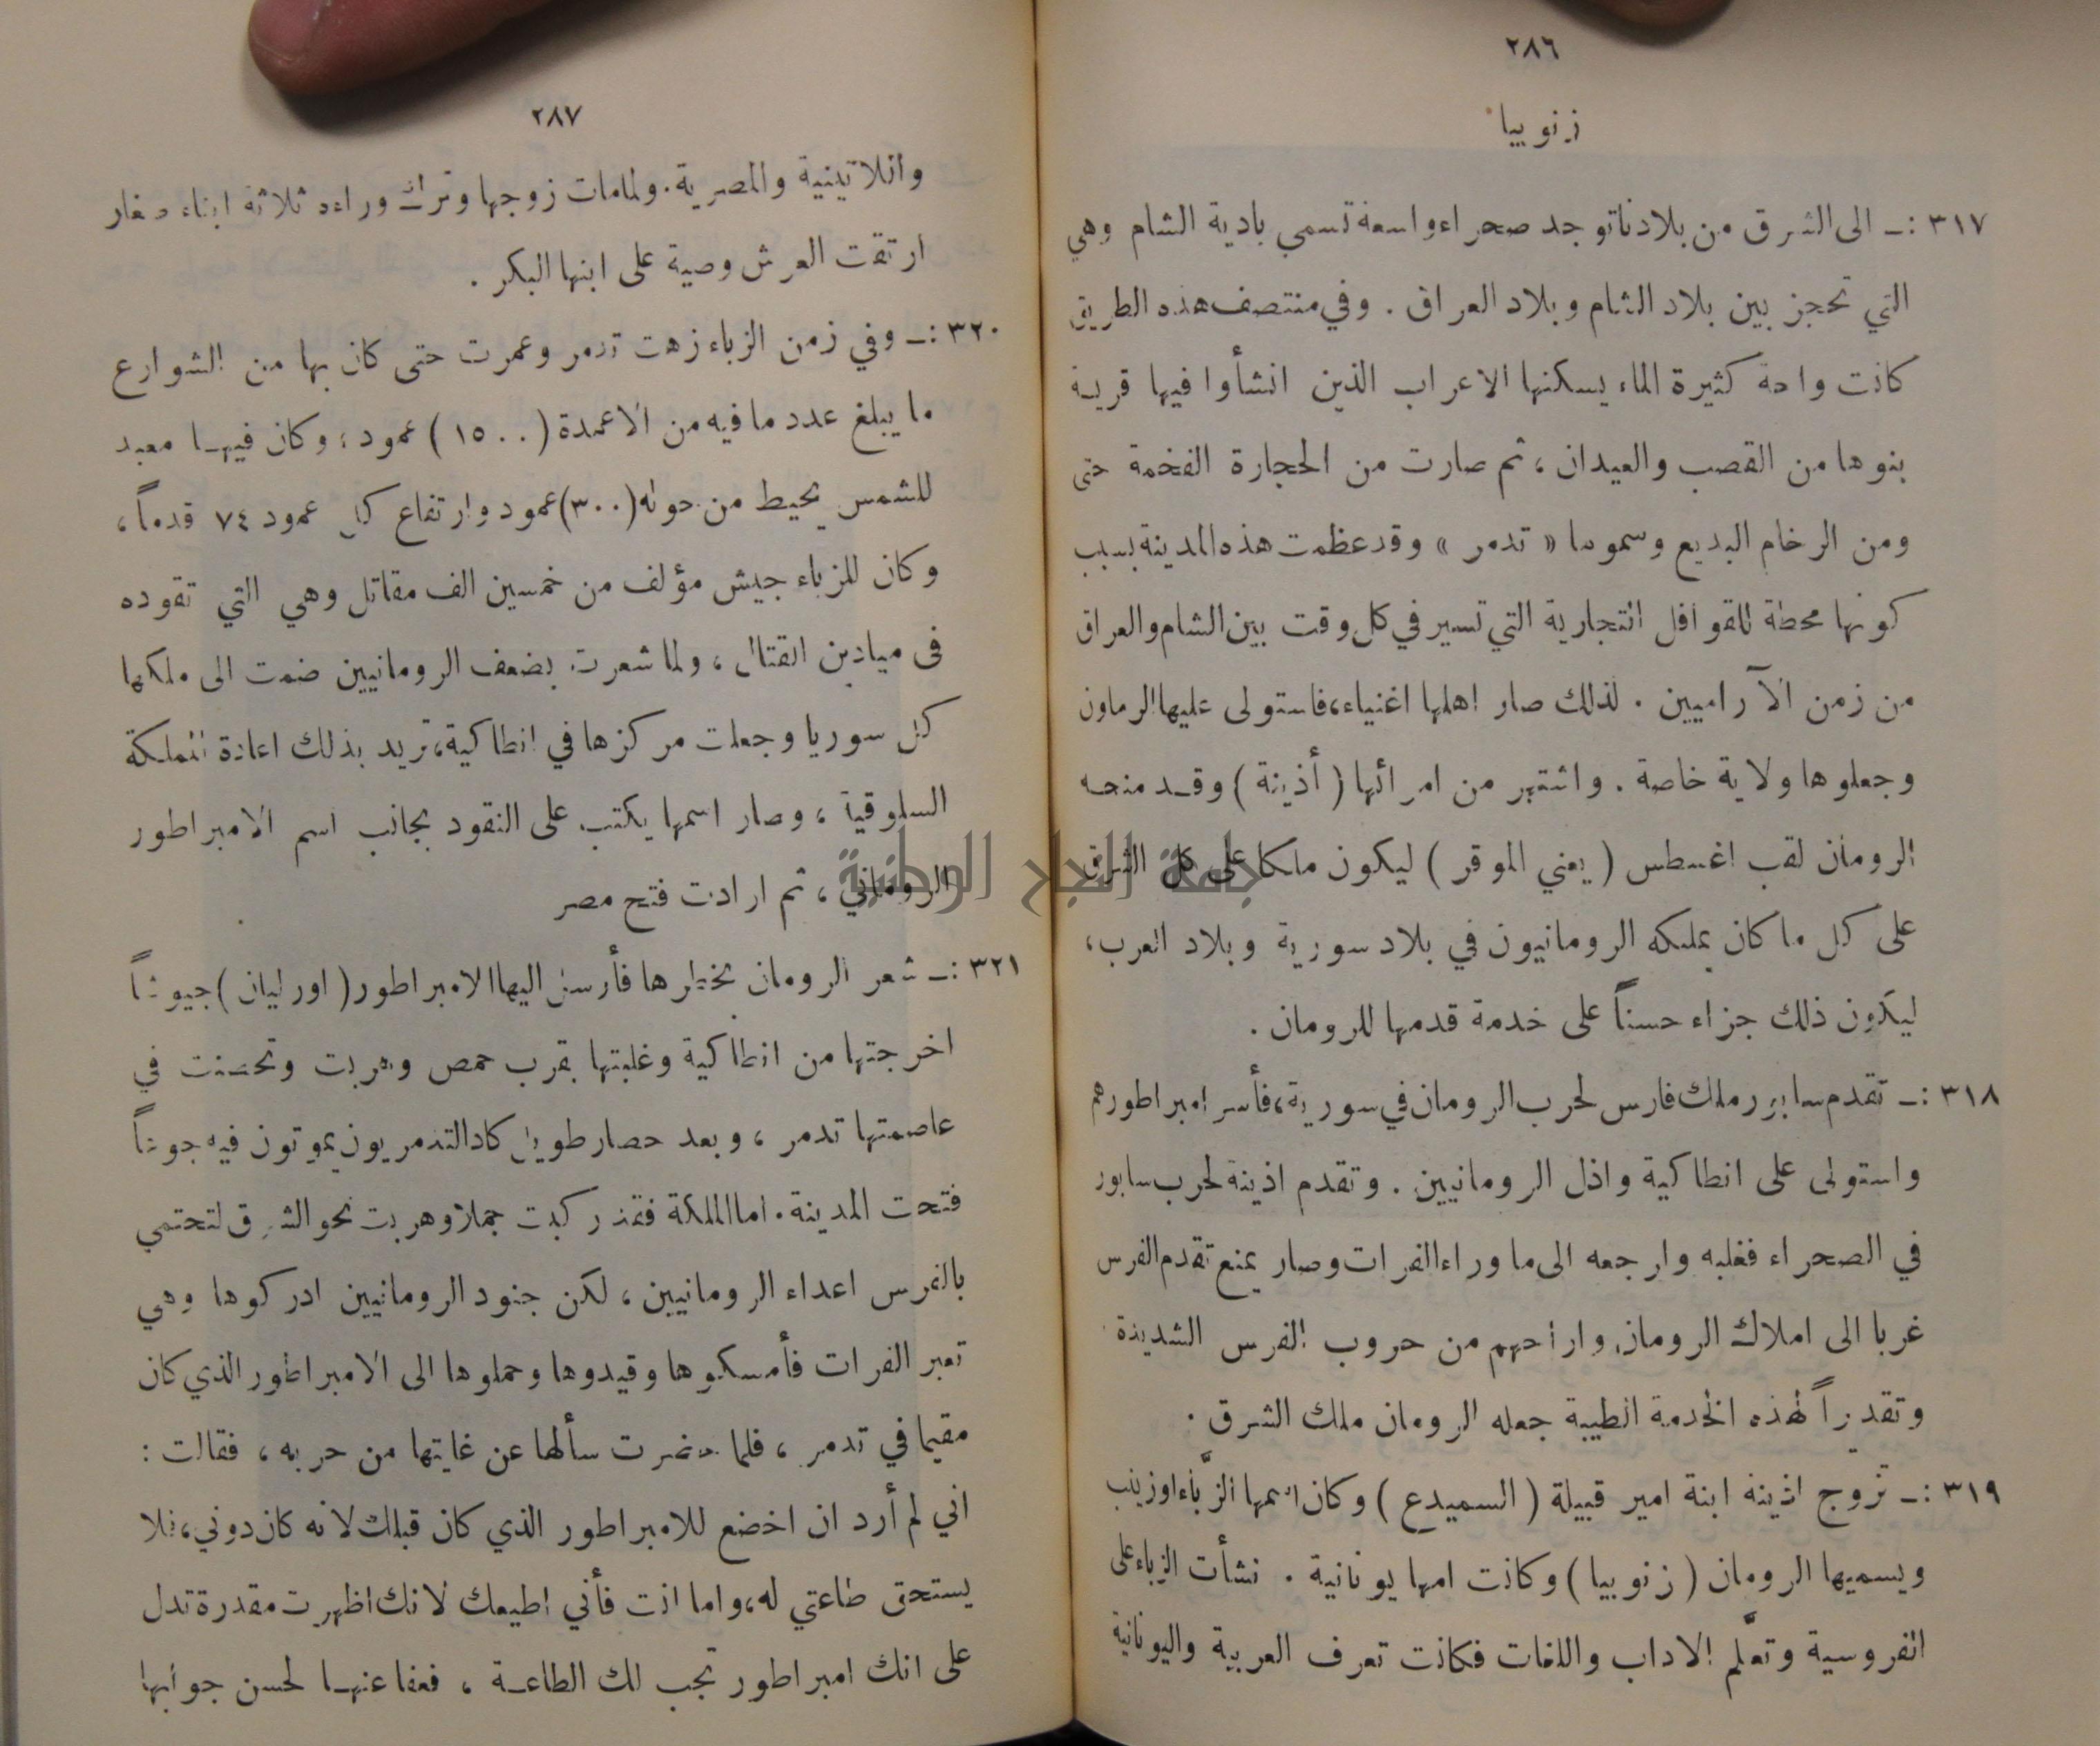 ٢٨٦
زنوبيا
٣١٧ :ـ الى الشرق من بلادنا توجد صحراء واسعة تسمي بادية الشام وهي
التي تحجز بين بلاد الشام وبلاد العراق . وفي منتصف هذه الطريق
كانت واحة كثيرة الماء يسكنها الاعراب الذين انشأوا فيها قرية
بنوها من القصب والعيدان ، ثم صارت من الحجارة الفخمة حتى
ومن الرخام البديع وسموها « تدمر » وقد عظمت هذه المدينة بسبب
كونها محطة للقوافل التجارية التي تسير في كل وقت بين الشام والعراق
من زمن الآراميين . لذلك صار اهلها اغنياء، فاستولى عليها الرماون
وجعلوها ولاية خاصة . واشتهر من امرائها ( أذينة ) وقد منحه
الرومان لقب اغسطس ( يعني الموقر ) ليكون ملكا على كل الشرق
على كل ما كان يملكه الرومانيون في بلاد سورية وبلاد العرب ،
ليكون ذلك جزاء حسناً على خدمة قدمها للرومان .
٣١٨ :ـ تقدم سابور ملك فارس لحرب الرومان في سورية، فأسر امبراطورهم
واستولى على انطاكية واذل الرومانيين . وتقدم اذينة لحرب سابور
في الصحراء فغلبه وارجعه الى ما وراء الفرات وصار يمنع تقدم الفرس
غربا الى املاك الرومان واراحهم من حروب الفرس الشديدة
وتقديراً لهذه الخدمة الطيبة جعله الرومان ملك الشرق .
٣١٩ :ـ تزوج اذينة ابنة امير قبيلة ( السميدع ) وكان اسمها الزَّباء او زينب
ويسميها الرومان ( زنوبيا ) وكانت امها يونانية . نشأت الزباء على
الفروسية وتعلّم الاداب واللغات فكانت تعرف العربية واليونانية
٢٨٧
واللاتينية والمصرية . ولما مات زوجها وترك وراءه ثلاثة ابناء صغار
ارتقت العرش وصية على ابنها البكر .
٣٢٠ :ـ وفي زمن الزباء زهت تدمر وعمرت حتى كان بها من الشوارع
ما يبلغ عدد ما فيه من الاعمدة ( ١٥٠٠ ) عمود ، وكان فيها معبد
للشمس يحيط من حوله (٣٠٠) عمود وارتفاع كل عمود ٧٤ قدماً ،
وكان للزباء جيش مؤلف من خمسين الف مقاتل وهي التي تقوده
فى ميادين القتال ، ولما شعرت بضعف الرومانيين ضمت الى ملكها
كل سوريا وجعلت مركزها في انطاكية، تريد بذلك اعادة المملكة
السلوقية ، وصار اسمها يكتب على النقود بجانب اسم الامبراطور
الروماني ، ثم ارادت فتح مصر
٣٢١ :ـ شعر الرومان بخطرها فأرسل اليها الامبراطور ( اورليان ) جيوشاً
اخرجتها من انطاكية وغلبتها بقرب حمص وهربت وتحصنت في
عاصمتها تدمر ، وبعد حصار طويل كاد التدمريون يموتون فيه جوعاً
فتحت المدينة . اما الملكة فقد ركبت جملا وهربت نحو الشرق لتحتمي
بالفرس اعداء الرومانيين ، لكن جنود الرومانيين ادركوها وهي
تعبر الفرات فأمسكوها وقيدوها وحملوها الى الامبراطور الذي كان
مقيما في تدمر ، فلما حضرت سألها عن غايتها من حربه ، فقالت :
اني لم أرد ان اخضع للامبراطور الذي كان قبلك لانه كان دوني، فلا
يستحق طاعتي له، واما انت فأني اطيعك لانك اظهرت مقدرة تدل
على انك امبراطور تجب لك الطاعة ، فعفا عنها لحسن جوابها
جامعة النجاح الوطنية